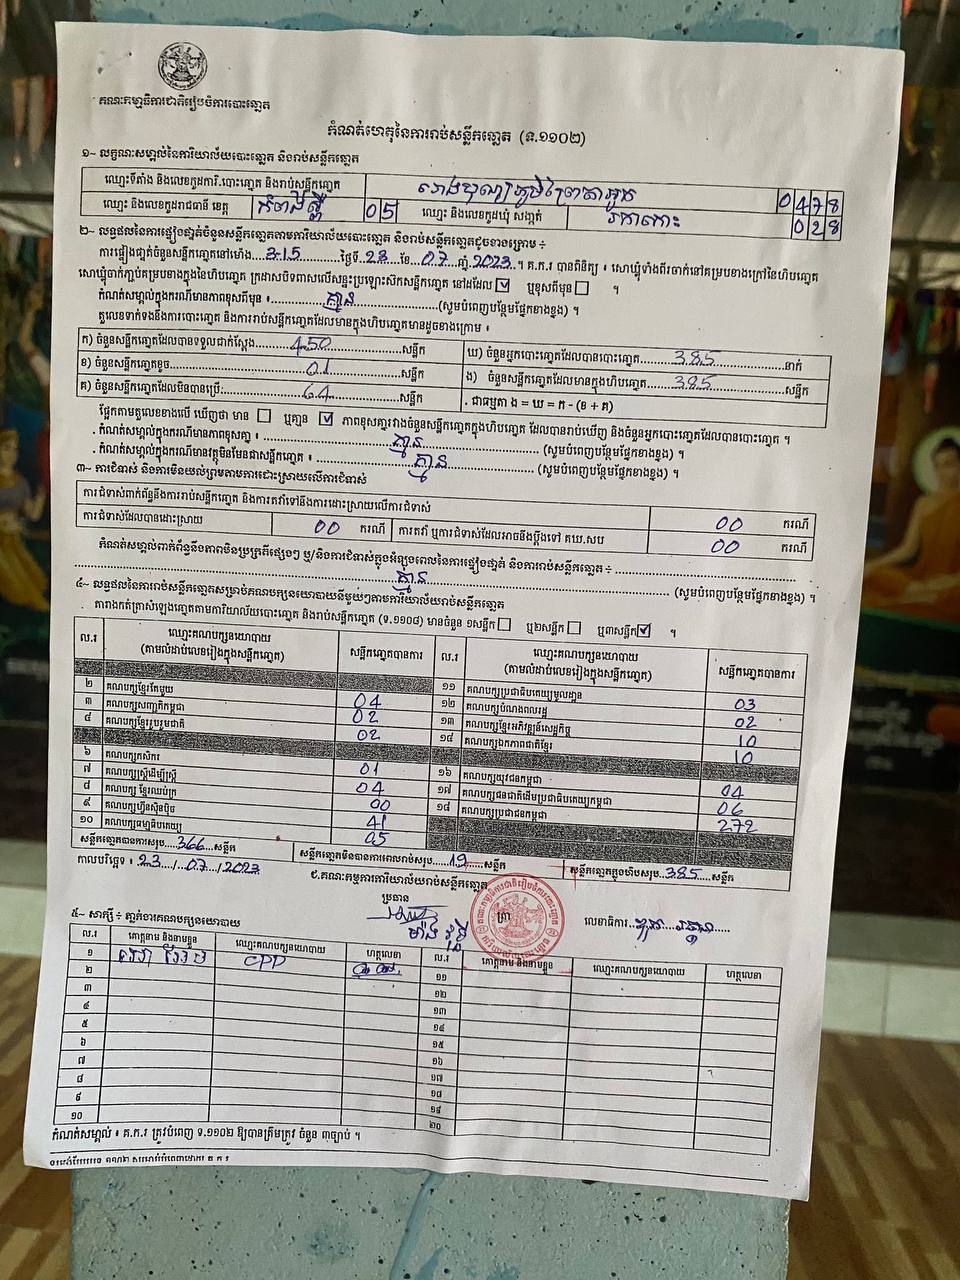 គណៈកម្មាធិការជាតិរៀបចំការបោះឆ្នោត
កំណត់ហេតុនៃការរាប់សន្លឹកឆ្នោត (ទ.១១០២)
១~ លក្ខណៈសម្គាល់នៃការិយាល័យបោះឆ្នោត និងរាប់សន្លឹកឆ្នោត
ឈ្មោះទីតាំង និងលេខកូដការិ.បោះឆ្នោត និងរាប់សន្លឹកឆ្នោត 0478
ឈ្មោះ និងលេខកូដរាជធានី ខេត្ត កំពង់ស្ពឺ 05 ឈ្មោះ និងលេខកូដឃុំ សង្កាត់ រកាកោះ 028
២~ លទ្ធផលនៃការផ្ទៀងផ្ទាត់ចំនួនសន្លឹកឆ្នោតតាមការិយាល័យបោះឆ្នោត និងរាប់សន្លឹកឆ្នោតដូចខាងក្រោម ៖
ការផ្ទៀងផ្ទាត់ចំនួនសន្លឹកឆ្នោតនៅម៉ោង 3:15 ថ្ងៃទី 23 ខែ 07 ឆ្នាំ 2023 ។ គ.ក.រ បានពិនិត្យ ៖ សោឃ្លុំទាំងពីរចាក់នៅគម្របខាងក្រៅនៃហិបឆ្នោត
សោឃ្លុំចាក់ភ្ជាប់គម្របខាងក្នុងនៃហិបឆ្នោត ក្រដាសបិទពាសលើសន្ទះប្រឡោះសិកសន្លឹកឆ្នោត នៅដដែល ☑ ឬខុសពីមុន ☐ ។
កំណត់សម្គាល់ក្នុងករណីមានភាពខុសពីមុន ៖ គ្មាន (សូមបំពេញបន្ថែមផ្នែកខាងខ្នង) ។
តួលេខទាក់ទងនឹងការបោះឆ្នោត និងការរាប់សន្លឹកឆ្នោតដែលមានក្នុងហិបឆ្នោតមានដូចខាងក្រោម ៖
ក) ចំនួនសន្លឹកឆ្នោតដែលបានទទួលជាក់ស្តែង 450 សន្លឹក ឃ) ចំនួនអ្នកបោះឆ្នោតដែលបានបោះឆ្នោត 385 នាក់
ខ) ចំនួនសន្លឹកឆ្នោតខូច 01 សន្លឹក ង) ចំនួនសន្លឹកឆ្នោតដែលមានក្នុងហិបឆ្នោត 385 សន្លឹក
គ) ចំនួនសន្លឹកឆ្នោតដែលមិនបានប្រើ 64 សន្លឹក . ជាធម្មតា ង = ឃ = ក - (ខ + គ)
ផ្អែកតាមតួលេខខាងលើ ឃើញថា មាន ☐ ឬគ្មាន ☑ ភាពខុសគ្នារវាងចំនួនសន្លឹកឆ្នោតក្នុងហិបឆ្នោត ដែលបានរាប់ឃើញ និងចំនួនអ្នកបោះឆ្នោតដែលបានបោះឆ្នោត ។
. កំណត់សម្គាល់ក្នុងករណីមានភាពខុសគ្នា ៖ គ្មាន (សូមបំពេញបន្ថែមផ្នែកខាងខ្នង) ។
. កំណត់សម្គាល់ក្នុងករណីមានវត្ថុមិនមែនជាសន្លឹកឆ្នោត ៖ គ្មាន (សូមបំពេញបន្ថែមផ្នែកខាងខ្នង) ។
៣~ ការជំទាស់ និងការមិនយល់ព្រមតាមការដោះស្រាយលើការជំទាស់
ការជំទាស់ពាក់ព័ន្ធនឹងការរាប់សន្លឹកឆ្នោត និងការតវ៉ាទៅនឹងការដោះស្រាយលើការជំទាស់ 00 ករណី
ការជំទាស់ដែលបានដោះស្រាយ 00 ករណី ការតវ៉ា ឬការជំទាស់ដែលអាចនឹងប្តឹងទៅ គឃ.សប 00 ករណី
កំណត់សម្គាល់ពាក់ព័ន្ធនឹងភាពមិនប្រក្រតីផ្សេងៗ ឬ/និងការជំទាស់ក្នុងអំឡុងពេលនៃការផ្ទៀងផ្ទាត់ និងការរាប់សន្លឹកឆ្នោត ៖
គ្មាន (សូមបំពេញបន្ថែមផ្នែកខាងខ្នង) ។
៤~ លទ្ធផលនៃការរាប់សន្លឹកឆ្នោតសម្រាប់គណបក្សនយោបាយនីមួយៗតាមការិយាល័យរាប់សន្លឹកឆ្នោត
តារាងកត់ត្រាសំឡេងឆ្នោតតាមការិយាល័យបោះឆ្នោត និងរាប់សន្លឹកឆ្នោត (ទ.១១០៨) មានចំនួន ១សន្លឹក ☐ ឬ២សន្លឹក ☐ ឬ៣សន្លឹក ☑ ។
ល.រ ឈ្មោះគណបក្សនយោបាយ (តាមលំដាប់លេខរៀងក្នុងសន្លឹកឆ្នោត) សន្លឹកឆ្នោតបានការ
២ គណបក្សខ្មែរតែមួយ 04
៣ គណបក្សសញ្ជាតិកម្ពុជា 02
៤ គណបក្សខ្មែររួបរួមជាតិ 02
៦ គណបក្សកសិករ 01
៧ គណបក្សស្ត្រីដើម្បីស្ត្រី 04
៨ គណបក្ស ខ្មែរឈប់ក្រ 00
៩ គណបក្សហ្វ៊ុនស៊ិនប៉ិច 41
១០ គណបក្សធម្មាធិបតេយ្យ 05
ល.រ ឈ្មោះគណបក្សនយោបាយ (តាមលំដាប់លេខរៀងក្នុងសន្លឹកឆ្នោត) សន្លឹកឆ្នោតបានការ
១១ គណបក្សប្រជាធិបតេយ្យមូលដ្ឋាន 03
១២ គណបក្សបំណងពលរដ្ឋ 02
១៣ គណបក្សខ្មែរអភិវឌ្ឍន៍សេដ្ឋកិច្ច 10
១៤ គណបក្សឯកភាពជាតិខ្មែរ 10
១៦ គណបក្សយុវជនកម្ពុជា 04
១៧ គណបក្សជនជាតិដើមប្រជាធិបតេយ្យកម្ពុជា 06
១៨ គណបក្សប្រជាជនកម្ពុជា 272
សន្លឹកឆ្នោតបានការសរុប 366 សន្លឹក សន្លឹកឆ្នោតមិនបានការពេលរាប់សរុប 19 សន្លឹក សន្លឹកឆ្នោតក្នុងហិបសរុប 385 សន្លឹក
កាលបរិច្ឆេទ ៖ 23/07/2023
ជ.គណៈកម្មការការិយាល័យរាប់សន្លឹកឆ្នោត
ប្រធាន ត្រា លេខាធិការ
៥~ សាក្សី ៖ ភ្នាក់ងារគណបក្សនយោបាយ
ល.រ គោត្តនាម និងនាមខ្លួន ឈ្មោះគណបក្សនយោបាយ ហត្ថលេខា ល.រ គោត្តនាម និងនាមខ្លួន ឈ្មោះគណបក្សនយោបាយ ហត្ថលេខា
១ CPP ១១
២ ១២
៣ ១៣
៤ ១៤
៥ ១៥
៦ ១៦
៧ ១៧
៨ ១៨
៩ ១៩
១០ ២០
កំណត់សម្គាល់ ៖ គ.ក.រ ត្រូវបំពេញ ទ.១១០២ ឱ្យបានត្រឹមត្រូវ ចំនួន ៣ច្បាប់ ។